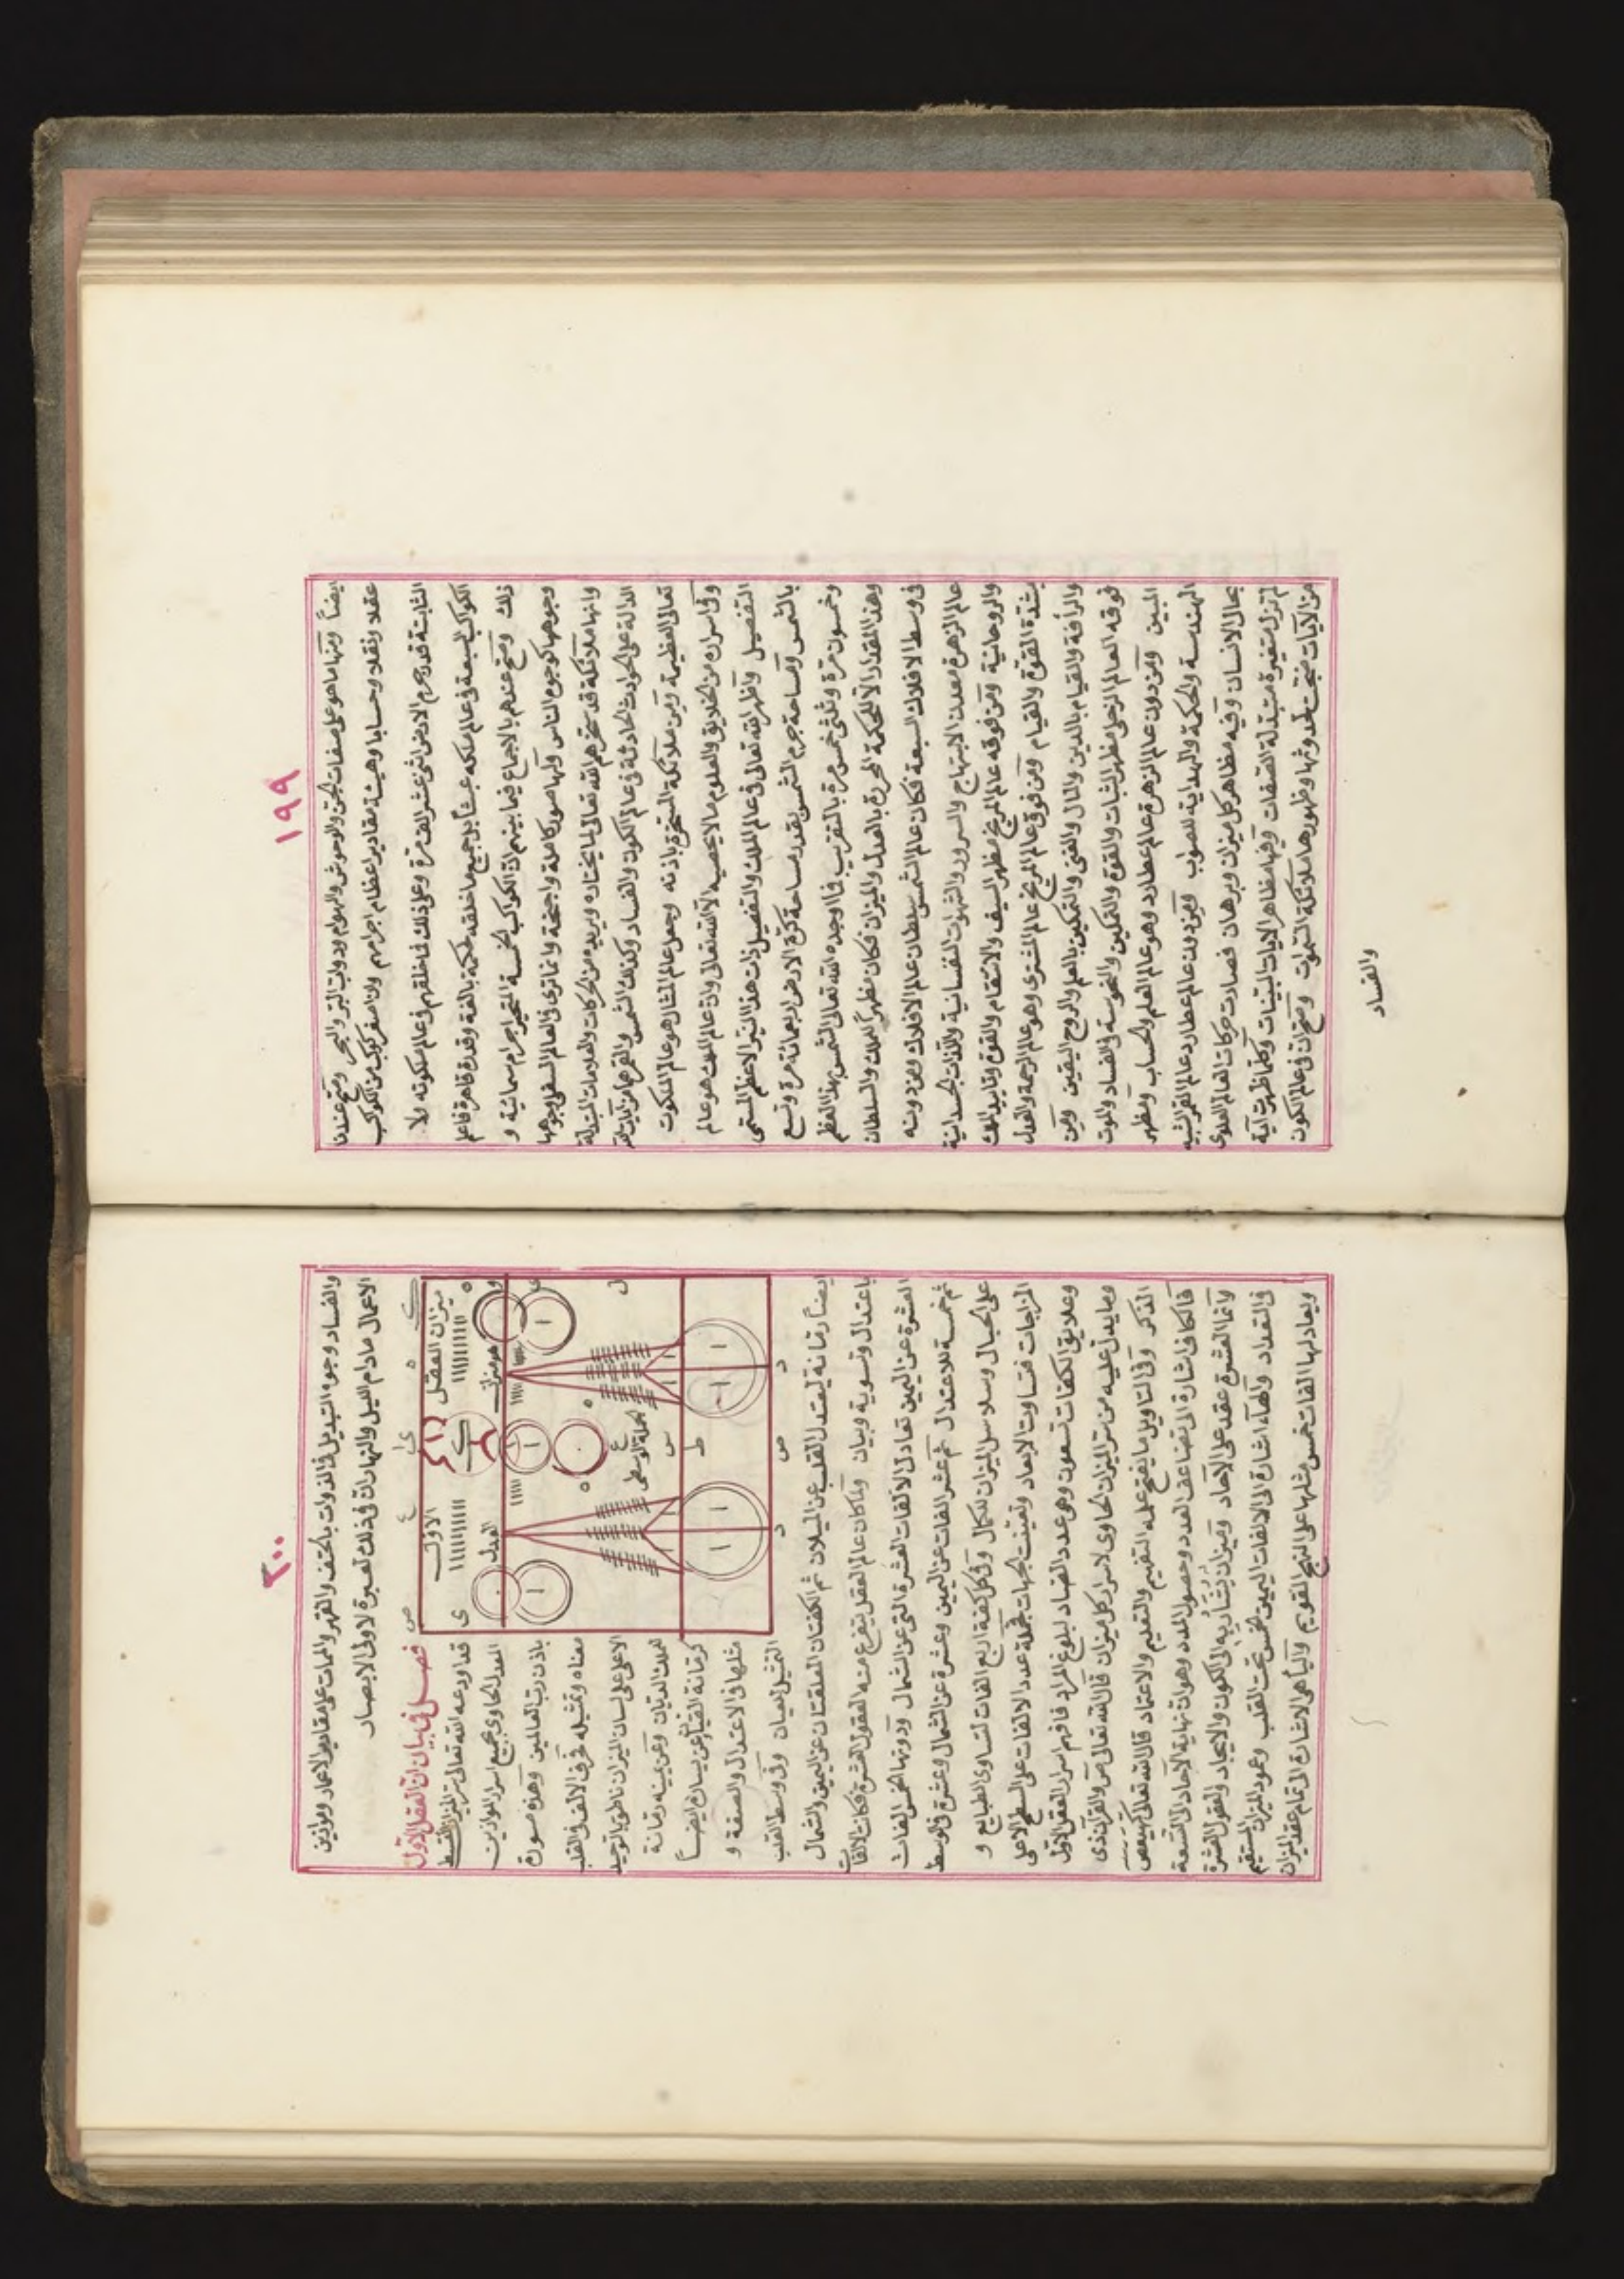 ١٩٩
ايضاً ومنها ما هو على صفات الجن والوحوش والهوام ودواب البر والبحر وصح عندنا
عقلا ونقلا وحسابا وهيئة مقادير اعظام اجرامهم وان اصغر كوكب من الكواكب
الثابتة قدر جرم الارض اثنى عشر الف مرة وعلى ذلك فما خلقهم فى عالم ملكوته ولا
الكواكب السبعة فى عالم ملكه عبثاً بل جميع ما خلقه لحكمة بالغة وقدرة قاهرة فاعلم
ذلك وصح عندهم بالاجماع فيما بينهم ان الكواكب الخمسة المتحيرة اجرام سمائية و
وجوهها كوجوه الناس ولها صور كاملة واجنحة وانما ترى فى العالم السفلى وجوهها
وانها ملائكة قد سخرهم الله تعالى لما يختاره ويريده من الحركات والعلامات المتبدلة
الدالة على الحوادث الحادثة فى عالم الكون والفساد وكذلك الشمس والقمر هما من آيات الله
تعالى العظيمة ومن ملائكته المسخرة باذنه وجعل عالم المثال هو عالم الملكوت
وفى اسراره من الخلايق والعلوم ما لا يحصيه الا الله تعالى وان عالم الملك هو عالم
التفصيل واظهر الله تعالى فى عالم الملك والتفصيل ذات هذا النير الاعظم المسمى
بالشمس ومساحة جرم الشمس بقدر مساحة كرة الارض اربعمائة مرة وتسع
وخمسون مرة وثلثى خمس مرة بالتقريب فما اوجد الله تعالى الشمس بهذا العظم
وهذا المقدار الا لحكمة المحررة بالعدل والميزان فكان مظهراً للملك والسلطان
فى وسط الافلاك السبعة فكان عالم الشمس سلطان عالم الافلاك ومن دونه
عالم الزهرة معدن الابتهاج والسرور والشهوات النفسانية واللذات الجسدانية
والروحانية ومن فوقه عالم المريخ مظهر السيف والانتقام والقوة وتاييد الملك
بشدة القوة والقيام ومن فوق عالم المريخ عالم المشترى وهو عالم الرحمة والعدل
والرأفة والقيام بالدين والمال والغنى والتمكين بالعلم والروح اليقين ومن
فوقه العالم الزحلى مظهر الثبات والقوة والتمكين والنحوسة والفساد والموت
المبين ومن دون عالم الزهرة عالم عطارد وهو عالم العلم والحساب ومظهر
الهندسة والحكمة والهداية للصواب ومن دون عالم عطارد عالم القمر الشبيه
بحال الانسان وفيه مظاهر كل ميزان وبرهان فصارت حركات العالم العلوى
لم تزل متغيرة متبدلة الصفات وفيها مظاهر الايات البينات وكلما ظهرت آية
من الآيات ضجت لحدوثها وظهورها ملائكة السموات وصح ان فى عالم الكون
والفساد
٢٠٠
والفساد وجوه التبديل فى الذوات بالحتف والقهر والممات على مقادير الاعمار وموازين
الاعمال ما دام الليل والنهار ان فى ذلك لعبرة لاولى الابصار
فصل فى بيان ان العقل الاول
قد اودعه الله تعالى سر ميزان القسط
العدل الحاوى لجميع اسرار الموازين
باذن رب العالمين وهذه صورة
معناه وتمثيله فحرف الالف فى القلب
الاعلى على لسان الميزان ناطق بالتوحيد
للملك الديان وعن يمينه رمانة
كرمانة القبان وعن يساره ايضاً
مثلها فى الاعتدال والصفة و
التمثيل للعيان وفى وسط القلب
ميزان العقل
الاول
هو ميزان
العدل
الحالة الوسطى
ايضاً رمانة ليعتدل القلب عن الميلان ثم الكفتان المعلقتان عن اليمين والشمال
باعتدال وتسوية وبيان ولما كان عالم العقل يتفرع منه العقول العشرة فكانت الالفات
العشرة عن اليمين تعادل الالفات العشرة التى عن الشمال ودونها خمس الفات
ثم خمسة للاعتدال ثم عشر الفات عن اليمين وعشرة عن الشمال وعشرة فى الوسط
على الحبال وسلاسل الميزان للكمال وفى كل كفة اربع الفات لتساوى الطبايع و
المزاجات فتساوت الابعاد وتعينت الجهات فجملة عدد الالفات على السطح الاعلى
وعلايق الكفات تسعون وهى عدد الصاد لبلوغ المراد فافهم اسرار العقل الاول
وما يدل عليه من سر الميزان الحاوى لاسرار كل ميزان قال الله تعالى ص والقرآن ذى
الذكر وفى التاويل ما يفتح عليه التفهيم والتعليم والاعتماد قال الله تعالى كهيعص
فالكاف اشارة الى تضاعف العدد وحصول المدد وهو ان نهاية الآحاد الى التسعة
لانها العشرة عقد على الآحاد وميزان يشار به الى الكون والايجاد والعقول العشرة
فى التعداد والهاء اشارة الى الالفات اليمين خمس تحت القلب وعمود الميزان المستقيم
ويعادلها الفات خمس مثلها على النهج القويم والياء هى الاشارة الى تمام عقد الميزان